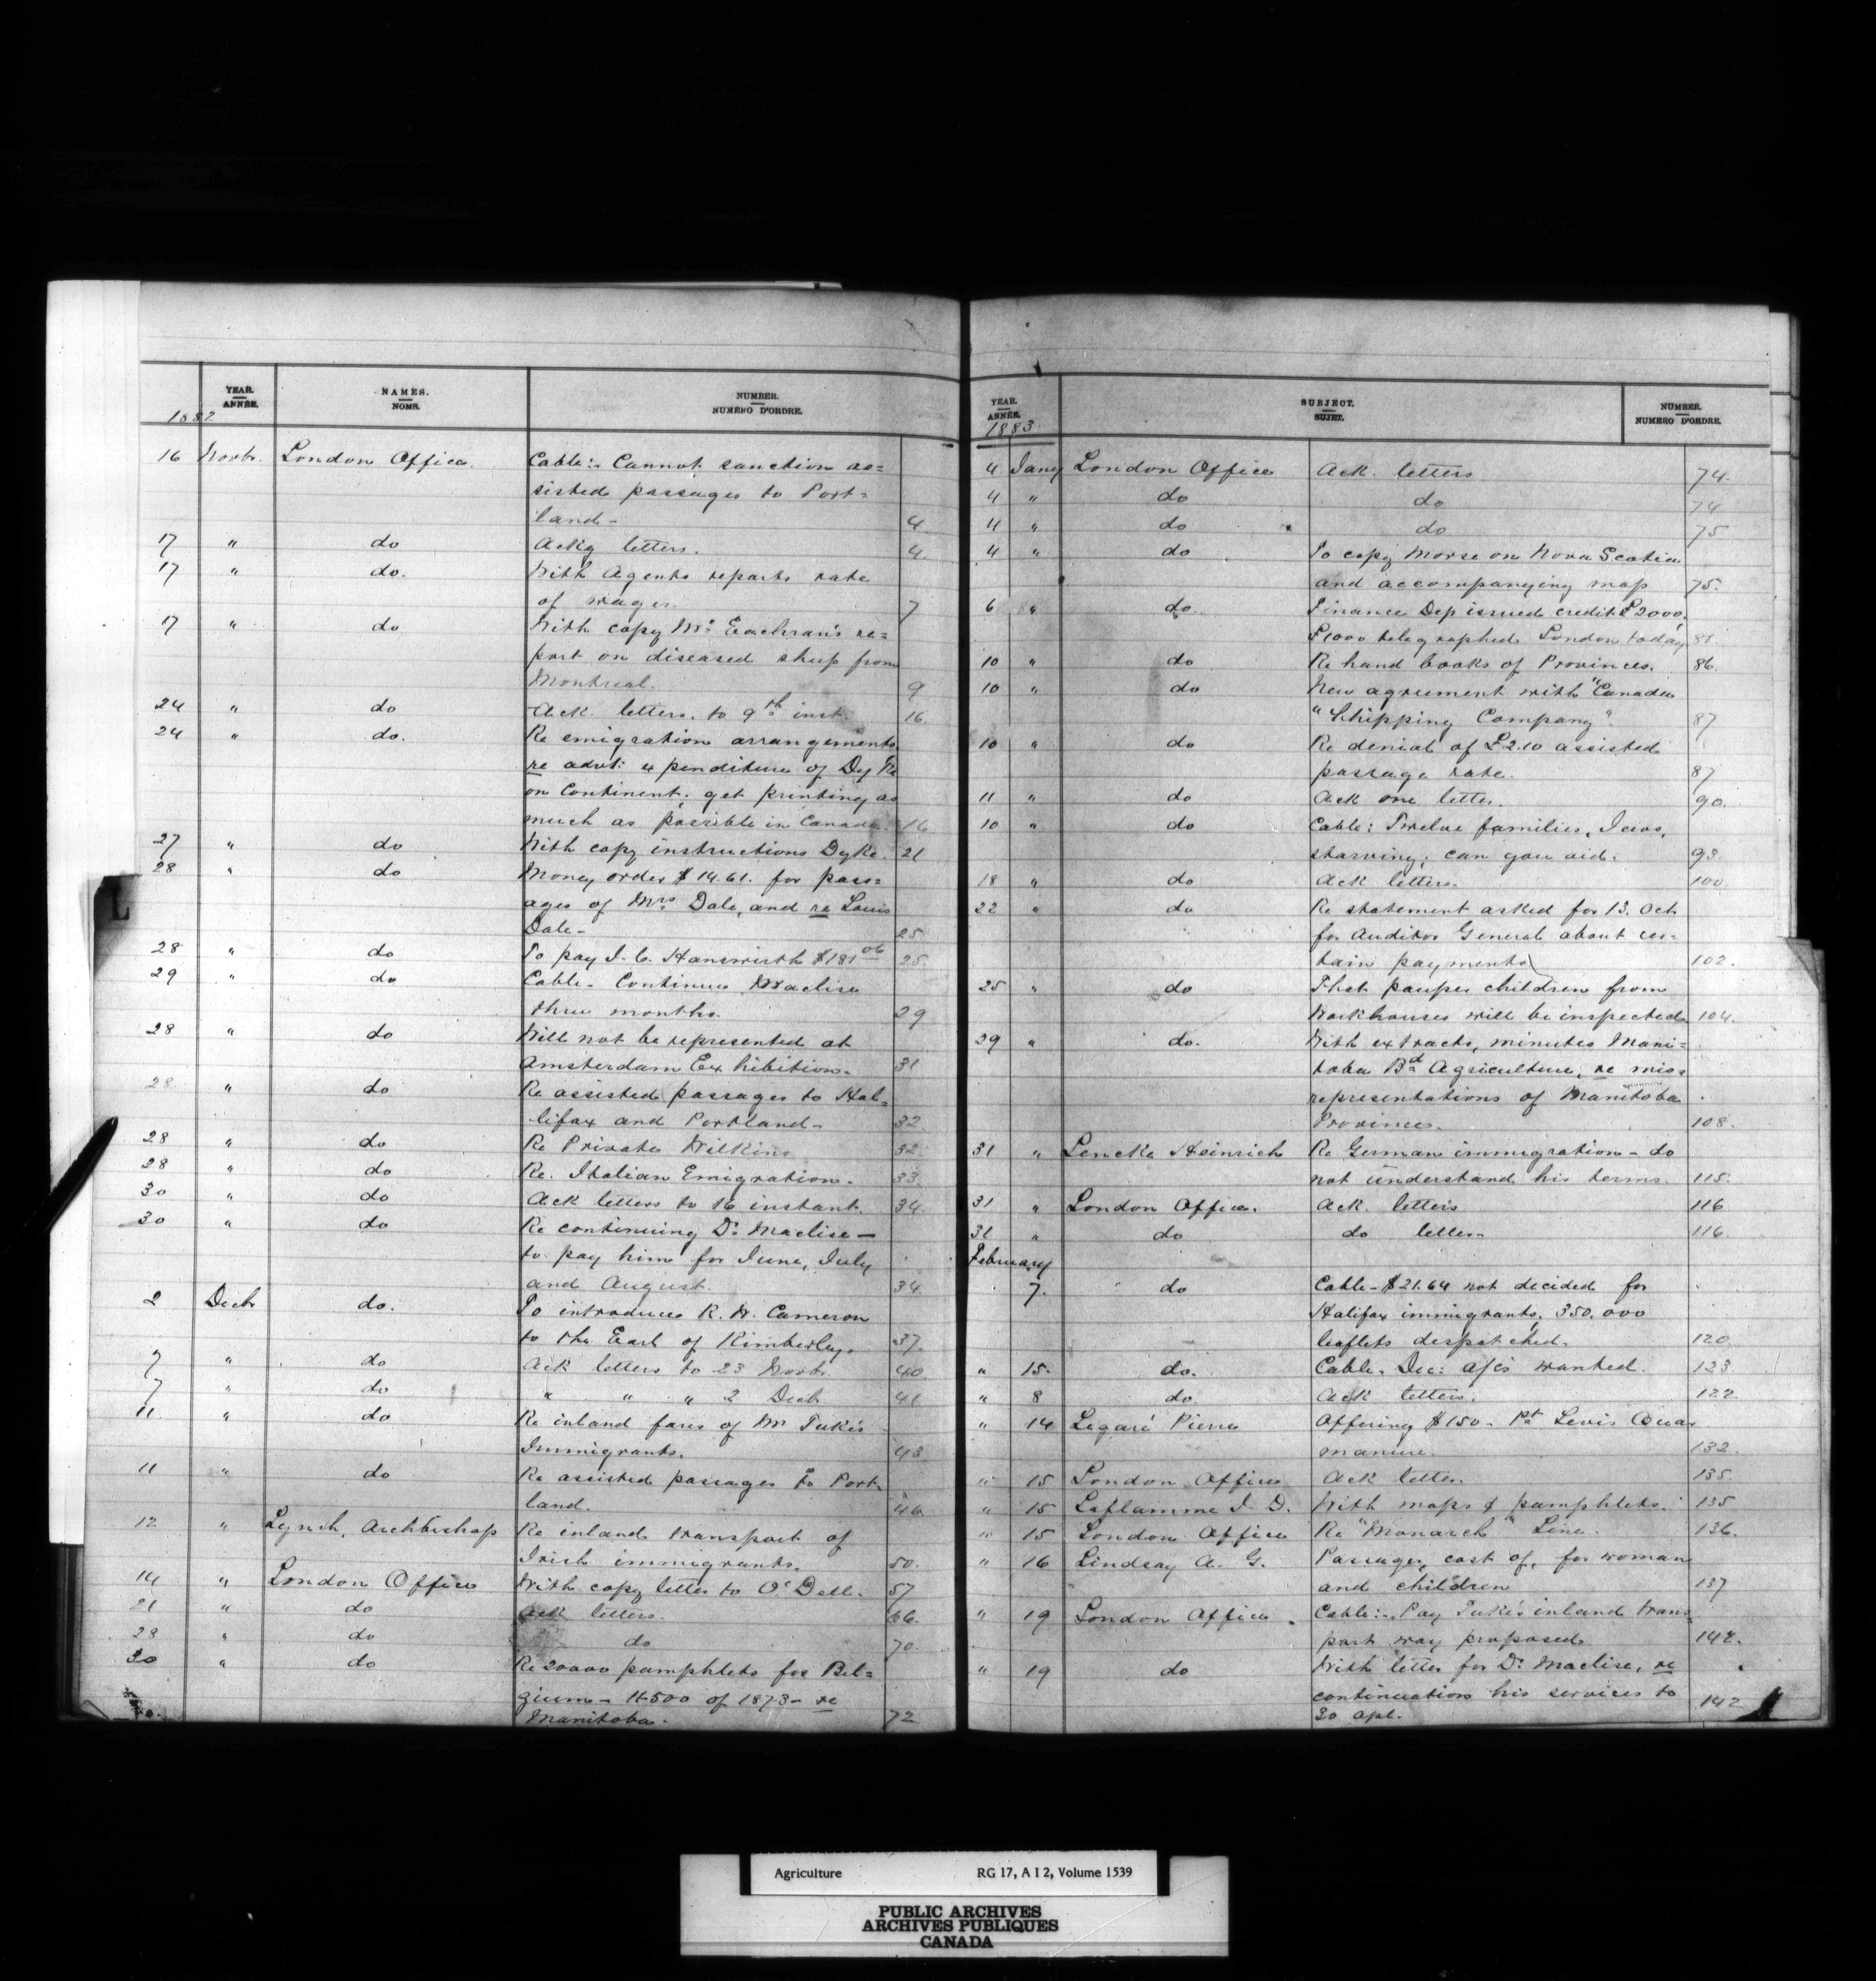 YEAR. ANNÉE. NAMES. NOMS. NUMBER. NUMÉRO D'ORDRE.
1882
16 Novbr. London Office. Cable:- Cannot sanction as=
sisted passages to Port=
land- 4
17 " do Ackg letters. 4.
17 " do. With Agents reports rate
of wages. 7
17 " do With copy Mc Eachran's re=
port on diseased sheep from
Montreal. 9
24 " do Ack. letters. to 9th inst. 16.
24 " do. Re emigration arrangements
re advt: expenditure of Dyke
on Continent; get printing as
much as possible in Canada. 16
27 " do With copy instructions Dyke. 21
28 " do Money order $14.61. for pass=
ages of Mrs Dale, and re Louis
Dale- 25
28 " do To pay J. C. Hanswirth $181 06 25.
29 " do Cable- Continue Maclise
three months. 29
28 " do Will not be represented at
Amsterdam Exhibition- 31
28 " do Re assisted passages to Hal=
lifax and Portland- 32
28 " do Re Private Wilkins 32
28 " do Re. Italian Emigration. 33
30 " do Ack letters to 16 instant. 34
30 " do Re continuing Dr Maclise-
to pay him for June, July
and August. 34
2 Decbr do. To introduce R. W. Cameron
to the Earl of Kimberley. 37.
7 " do Ack letters to 23 Novbr. 40.
7 " do " " " 2 Decbr 41
11 " do Re inland fares of Mr Tuke's
Immigrants. 43
11 " do Re assisted passages to Port
land. 46
12 " Lynch, Archbishop Re inland transport of
Irish immigrants. 50.
14 " London Office With copy letter to O'Dell. 57
21 " do Ack letters. 66.
28 " do do 70.
30 " do Re 20000 pamphlets for Bel=
gium- 11500 of 1873- re
Manitoba- 72
YEAR. ANNÉE. SUBJECT. SUJET. NUMBER. NUMÉRO D'ORDRE.
1883
4 Jany London Office Ack. letters 74.
4 " do do 74
4 " do do 75
4 " do To copy Morse on Nova Scotia
and accompanying map 75.
6 " do. Finance Dep issued credit £2000,
£1000 telegraphed London today 81
10 " do Re hand books of Provinces. 86.
10 " do New agreement with "Canada
"Shipping Company" 87
10 " do Re denial of £2.10 assisted
passage rate. 87
11 " do Ack one letter. 90.
10 " do Cable: Twelve families, Jews,
starving; can you aid. 93.
18 " do Ack letters. 100
22 " do Re statement asked for 13. Oct
for Auditor General about cer=
tain payments 102.
25 " do That pauper children from
Workhouses will be inspected. 104.
29 " do. With extracts, minutes Mani=
toba Bd Agriculture, re mis=
representations of Manitoba
Province. 108.
31 " Lencke Heinrich Re German immigration- do
not understand his terms. 115.
31 " London Office. Ack. letters 116
31 " do do letter- 116.
February
7. do Cable- $21.64 not decided for
Halifax immigrants, 350,000
leaflets despatched. 120
" 15. do. Cable- Dec: a/cs wanted. 123.
" 8 do Ack letters. 122
" 14 Legaré Pierre Offering $150- Pt Levis Quar
manure. 132.
" 15 London Office Ack letter. 135.
" 15 Laflamme J. D. With maps & pamphlets. 135
" 15 London Office Re "Monarch" Line. 136.
" 16 Lindsay A. G. Passages, cost of, for woman
and children 137
" 19 London Office. Cable:- Pay Tuke's inland trans
port way proposed 142.
" 19 do With letter for Dr Maclise, re
continuation his services to
30 Apl. 142
L
Agriculture RG 17, A I 2, Volume 1539
PUBLIC ARCHIVES
ARCHIVES PUBLIQUES
CANADA